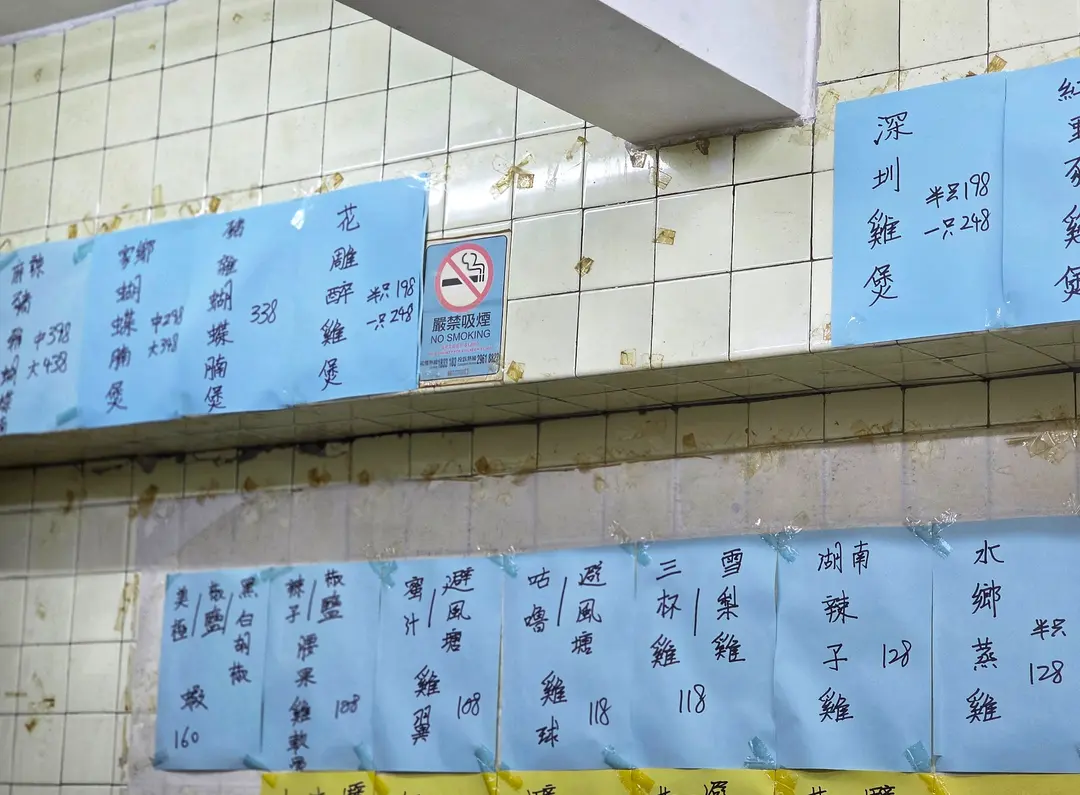 麻辣
中398
大438
家鄉蝴蝶腩煲
中298
大348
豬雜蝴蝶腩煲
338
花雕醉雞煲
半只198
一只248
嚴禁吸煙
NO SMOKING
深圳雞煲
半只198
一只248
雞煲
美極/椒鹽/黑白胡椒
蝦
160
辣子/椒鹽
腰果雞軟
108
蜜汁/避風塘
雞翼
108
咕嚕/避風塘
雞球
118
三杯雞/雪梨雞
118
湖南
辣子雞
128
水鄉蒸雞
半只
128